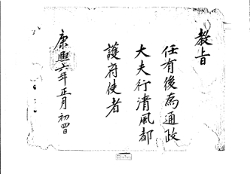 敎旨
任有後為通政
大夫行清風都
護府使者
康熙六年正月初四日